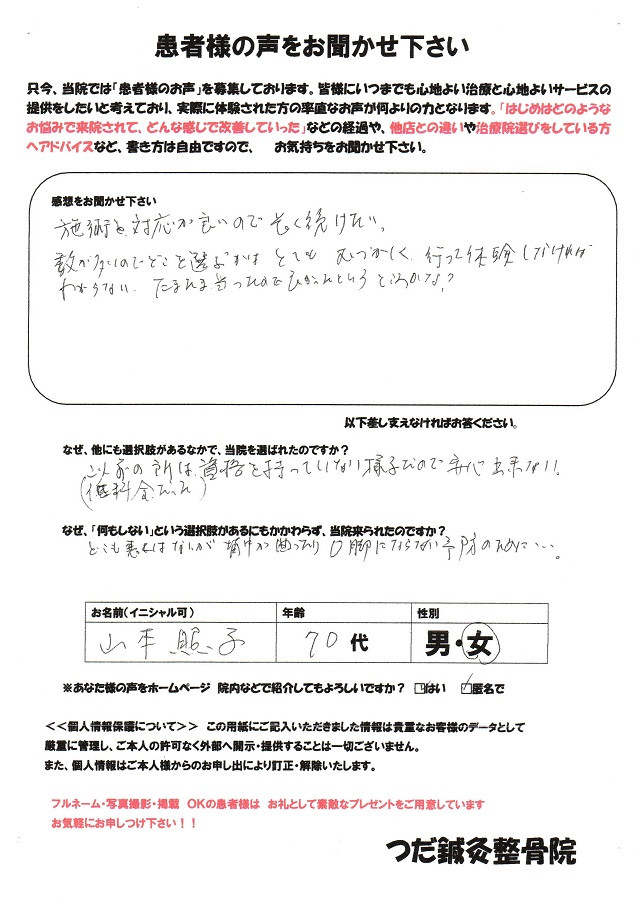 患者様の声をお聞かせ下さい
只今、当院では「患者様のお声」を募集しております。皆様にいつまでも心地よい治療と心地よいサービスの
提供をしたいと考えており、実際に体験された方の率直なお声が何よりの力となります。「はじめはどのような
お悩みで来院されて、どんな感じで改善していった」などの経過や、他店との違いや治療院選びをしている方
へアドバイスなど、書き方は自由ですので、 お気持ちをお聞かせ下さい。
感想をお聞かせ下さい
施術も対応が良いので長く続けたい。
数が多いのでどこを選ぶかは とても むづかしく、行って体験しなければ
わからない、たまたま当ったので良かったというところかな?
以下差し支えなければお答ください。
なぜ、他にも選択肢があるなかで、当院を選ばれたのですか?
以前の所は資格を持っていない様子なので安心出来ない!
(低料金だった)
なぜ、「何もしない」という選択肢があるにもかかわらず、当院来られたのですか?
どこも悪くはないが背中が曲ったりO脚にならない予防のために…。
お名前(イニシャル可) 年齢 性別
山本照子 70代 男・女
※あなた様の声をホームページ 院内などで紹介してもよろしいですか? □はい ☑匿名で
<<個人情報保護について>> この用紙にご記入いただきました情報は貴重なお客様のデータとして
厳重に管理し、ご本人の許可なく外部へ開示・提供することは一切ございません。
また、個人情報はご本人様からのお申し出により訂正・解除いたします。
フルネーム・写真撮影・掲載 OKの患者様は お礼として素敵なプレゼントをご用意しています
お気軽にお申しつけ下さい!!
つだ鍼灸整骨院